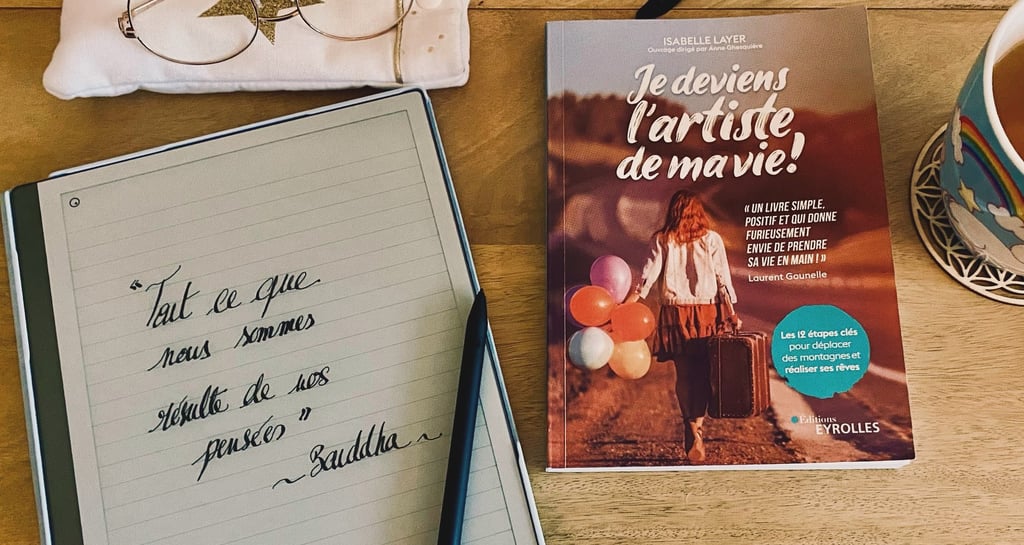 “Tout ce que
nous sommes
résulte de nos
pensées”
~ Bouddha ~
ISABELLE LAYER
Ouvrage dirigé par Anne Ghesquière
Je deviens
l'artiste
de ma vie!
« UN LIVRE SIMPLE,
POSITIF ET QUI DONNE
FURIEUSEMENT
ENVIE DE PRENDRE
SA VIE EN MAIN ! »
Laurent Gounelle
Les 12 étapes clés
pour déplacer
des montagnes et
réaliser ses rêves
Editions
EYROLLES